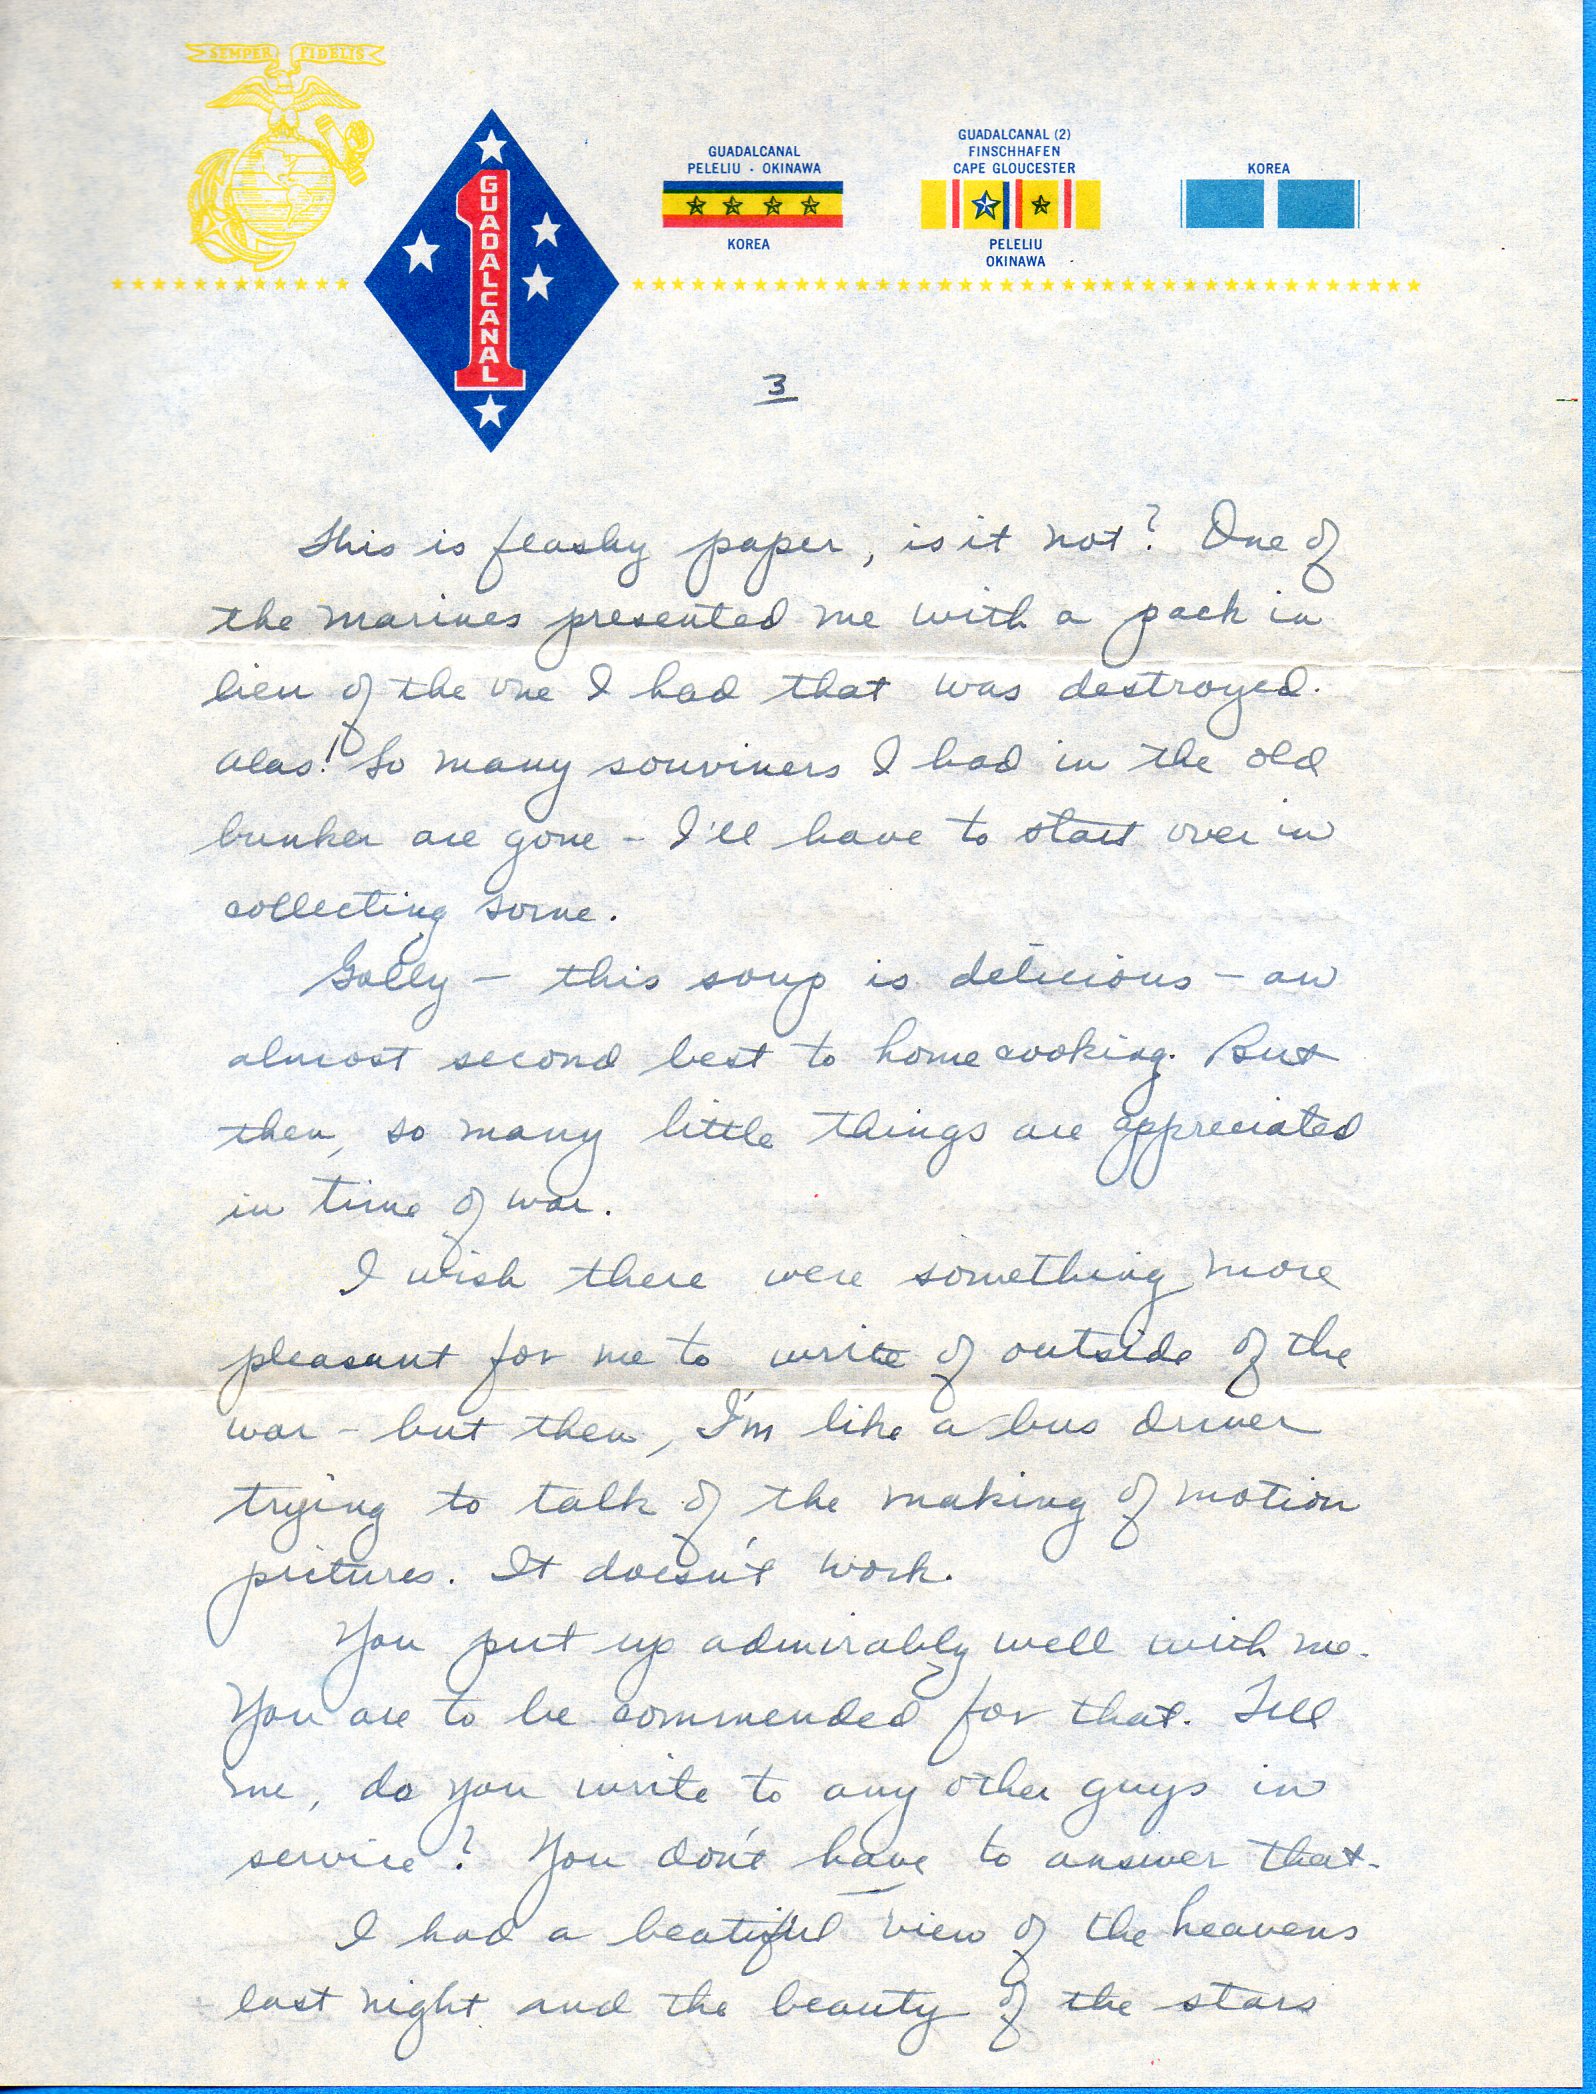 SEMPER FIDELIS
GUADALCANAL
GUADALCANAL
PELELIU · OKINAWA
KOREA
GUADALCANAL (2)
FINSCHHAFEN
CAPE GLOUCESTER
PELELIU
OKINAWA
KOREA
3
This is flashy paper, is it not? One of
the marines presented me with a pack in
lieu of the one I had that was destroyed.
Alas! So many souviners I had in the old
bunker are gone - I'll have to start over in
collecting some.
Golly - this soup is delicious - an
almost second best to home cooking. But
then, so many little things are appreciated
in time of war.
I wish there were something more
pleasant for me to write of outside of the
war - but then, I'm like a bus driver
trying to talk of the making of motion
pictures. It doesn't work.
You put up admirably well with me.
You are to be commended for that. Tell
me, do you write to any other guys in
service? You don't have to answer that.
I had a beatiful view of the heavens
last night and the beauty of the stars